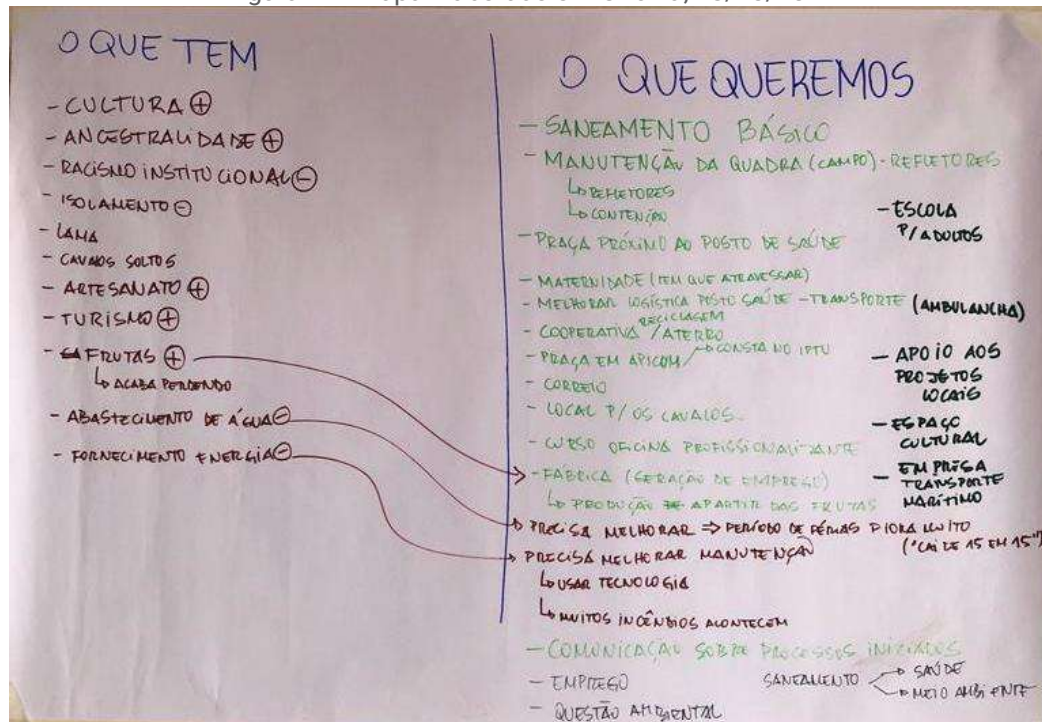 O QUE TEM
- CULTURA ⊕
- ANCESTRALIDADE ⊕
- RACISMO INSTITUCIONAL ⊖
- ISOLAMENTO ⊖
- LAMA
- CAVALOS SOLTOS
- ARTESANATO ⊕
- TURISMO ⊕
- FRUTAS ⊕
↳ ACABA PERDENDO
- ABASTECIMENTO DE ÁGUA ⊖
- FORNECIMENTO ENERGIA ⊖
O QUE QUEREMOS
- SANEAMENTO BÁSICO
- MANUTENÇÃO DA QUADRA (CAMPO) - REFLETORES
↳ REFLETORES
↳ CONTENÇÃO
- PRAÇA PRÓXIMO AO POSTO DE SAÚDE
- MATERNIDADE (TEM QUE ATRAVESSAR)
- MELHORAR LOGÍSTICA POSTO SAÚDE - TRANSPORTE (AMBULANCHA)
- COOPERATIVA RECICLAGEM / ATERRO
- PRAÇA EM APICUM → CONSTA NO IPTU
- CORREIO
- LOCAL P/ OS CAVALOS
- CURSO OFICINA PROFISSIONALIZANTE
- FÁBRICA (GERAÇÃO DE EMPREGO)
↳ PRODUÇÃO APARTIR DAS FRUTAS
PRECISA MELHORAR ⇒ PERÍODO DE FÉRIAS PIORA MUITO
("CAI DE 15 EM 15")
PRECISA MELHORAR MANUTENÇÃO
↳ USAR TECNOLOGIA
↳ MUITOS INCÊNDIOS ACONTECEM
- COMUNICAÇÃO SOBRE PROCESSOS INICIADOS
- EMPREGO
SANEAMENTO → SAÚDE
→ MEIO AMBIENTE
- QUESTÃO AMBIENTAL
- ESCOLA
P/ ADULTOS
- APOIO AOS
PROJETOS
LOCAIS
- ESPAÇO
CULTURAL
- EMPRESA
TRANSPORTE
MARÍTIMO